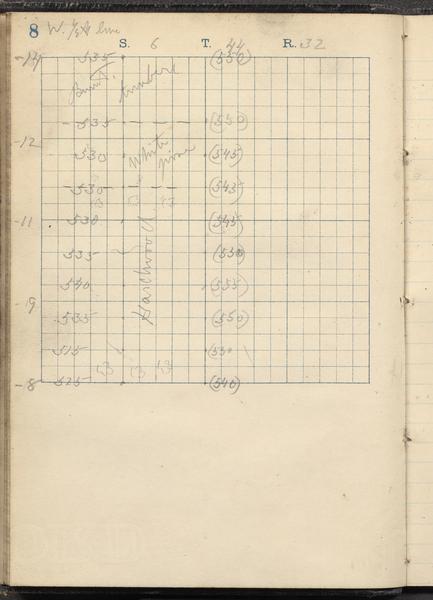 8 W. 1/2 A line
S. 6 T. 44 R. 32
-14 535 (550)
Burnt timber
535 (550)
-12
530 White pine (545)
530 (545)
-11 530 (545)
535 (550)
540 Hardwood (555)
-9
535 (550)
515 (530
-8 525 (540)